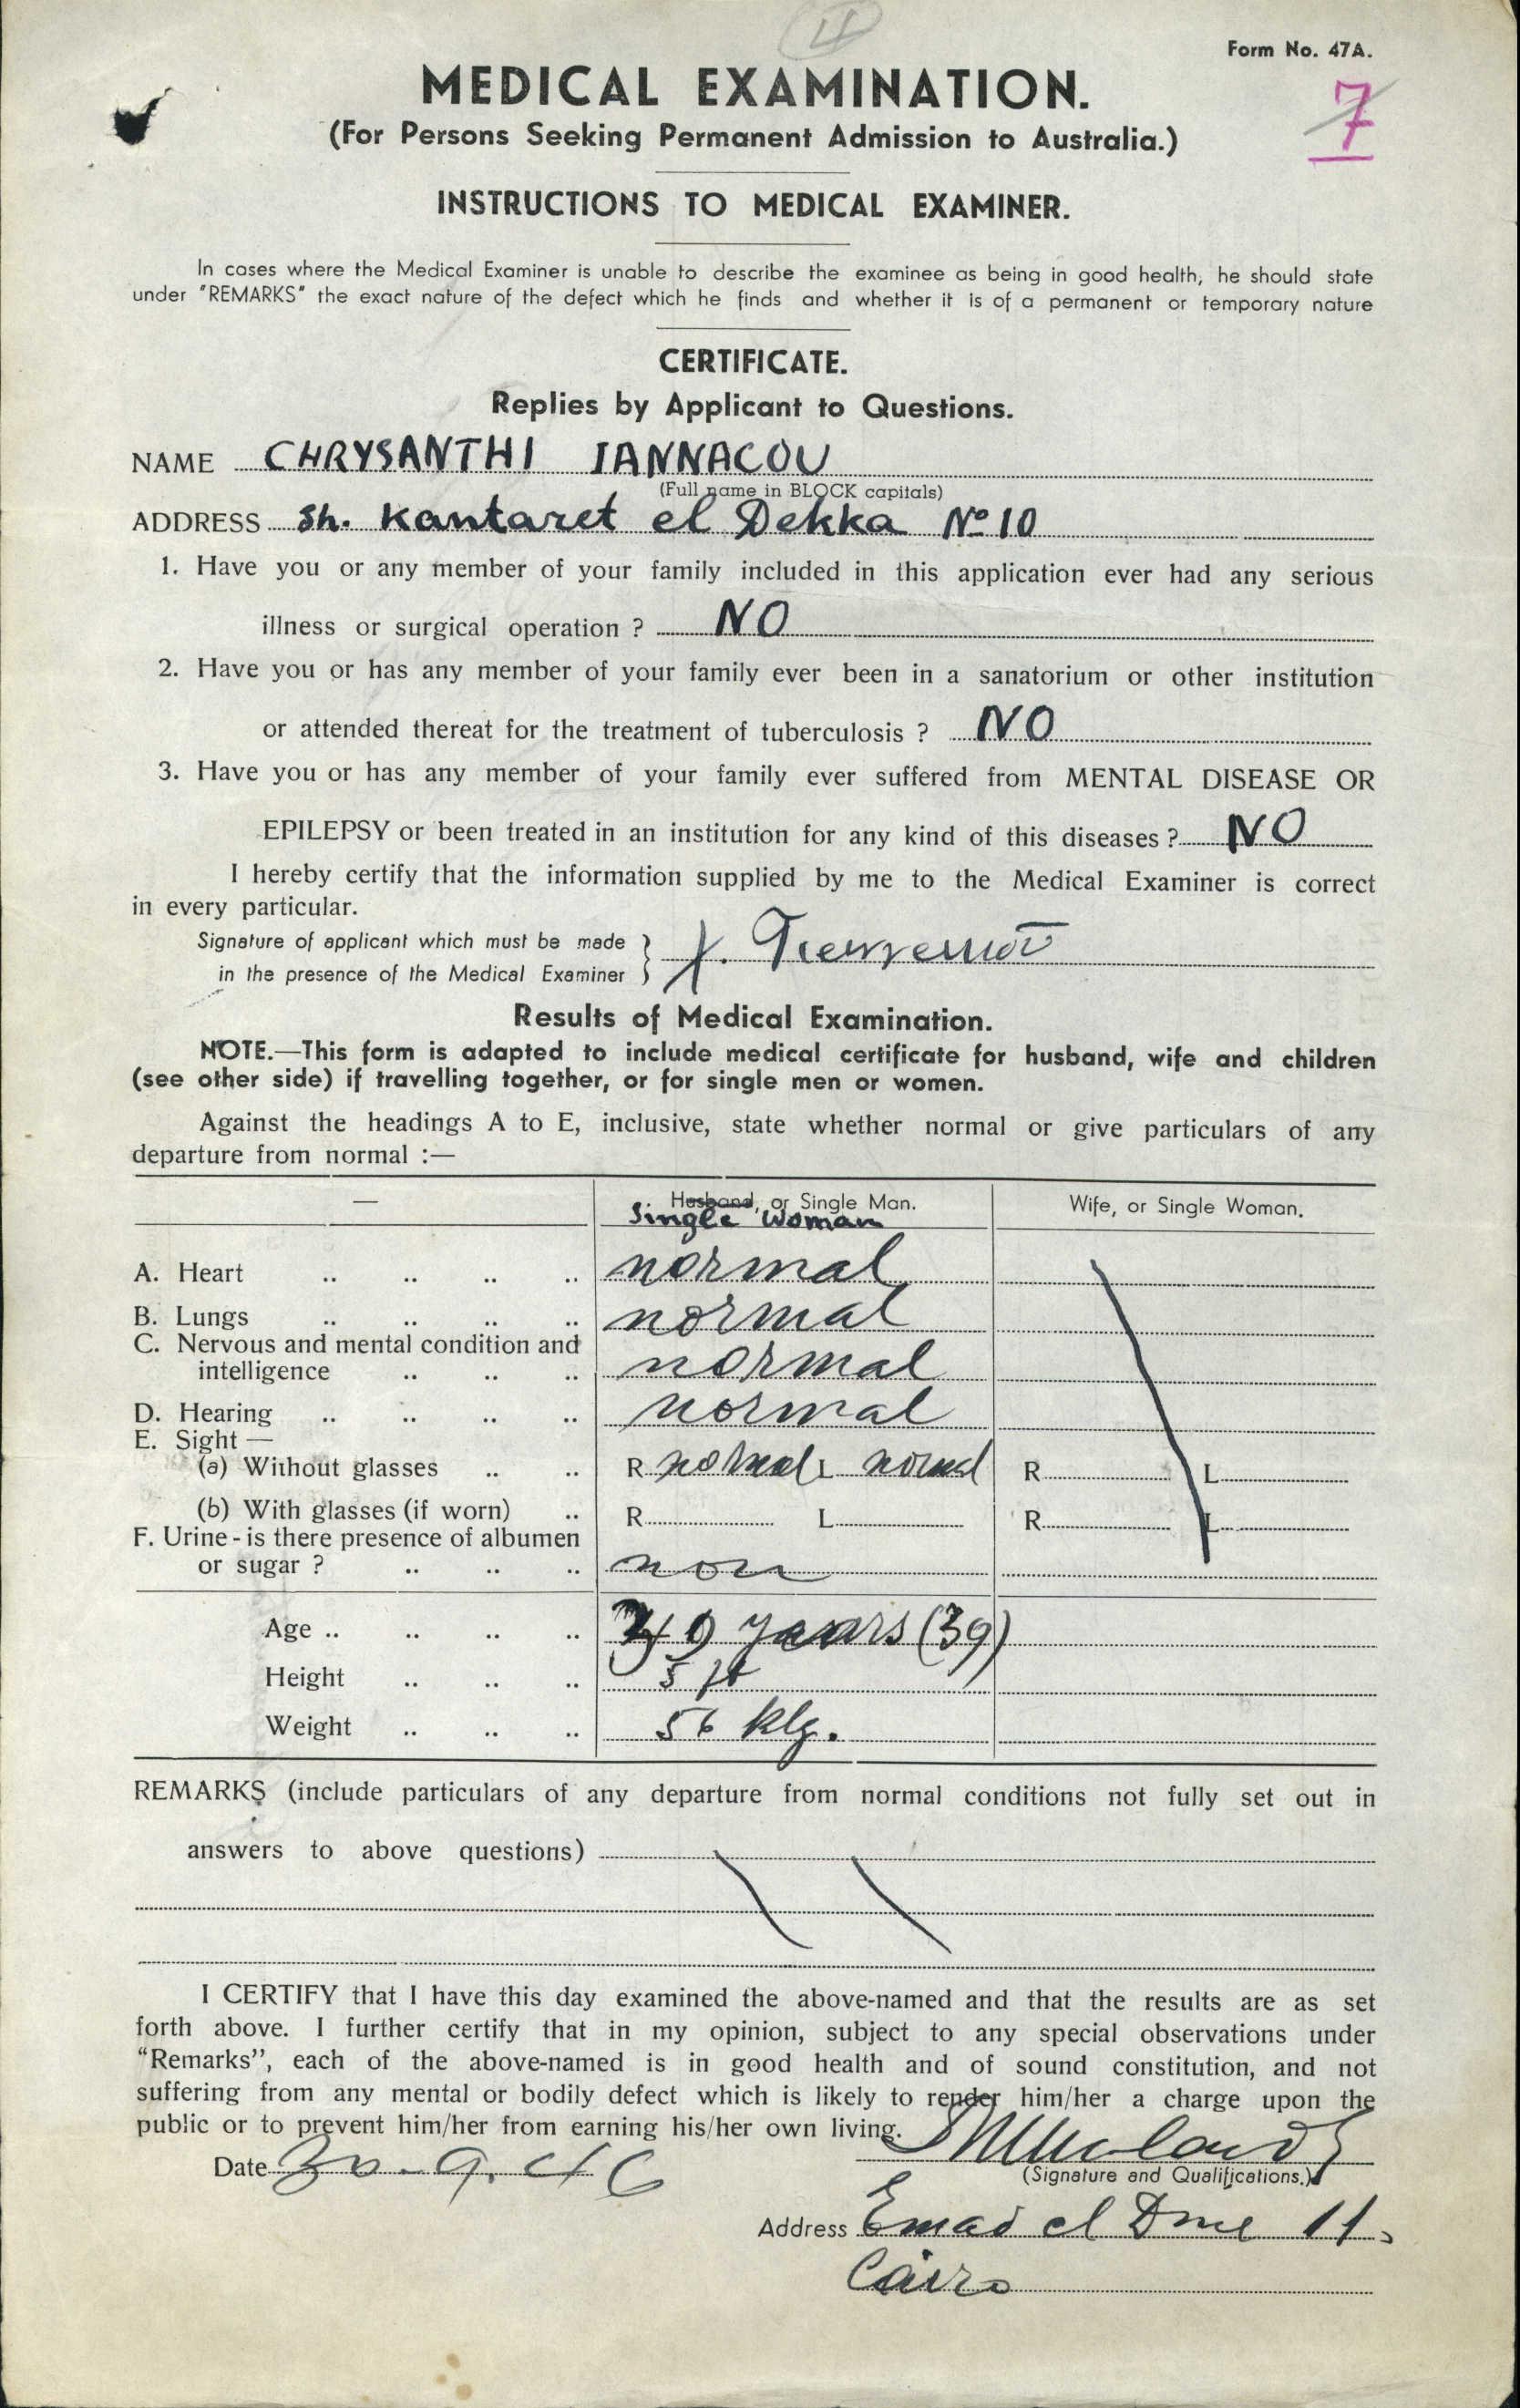 4
Form No. 47A.
7
MEDICAL EXAMINATION.
(For Persons Seeking Permanent Admission to Australia.)
INSTRUCTIONS TO MEDICAL EXAMINER.
In cases where the Medical Examiner is unable to describe the examinee as being in good health, he should state
under "REMARKS" the exact nature of the defect which he finds and whether it is of a permanent or temporary nature
CERTIFICATE.
Replies by Applicant to Questions.
NAME CHRYSANTHI IANNACOU
(Full name in BLOCK capitals)
ADDRESS Sh. Kantaret el Dekka Nº 10
1. Have you or any member of your family included in this application ever had any serious
illness or surgical operation ? NO
2. Have you or has any member of your family ever been in a sanatorium or other institution
or attended thereat for the treatment of tuberculosis ? NO
3. Have you or has any member of your family ever suffered from MENTAL DISEASE OR
EPILEPSY or been treated in an institution for any kind of this diseases ? NO
I hereby certify that the information supplied by me to the Medical Examiner is correct
in every particular.
Signature of applicant which must be made
in the presence of the Medical Examiner
Results of Medical Examination.
NOTE.—This form is adapted to include medical certificate for husband, wife and children
(see other side) if travelling together, or for single men or women.
Against the headings A to E, inclusive, state whether normal or give particulars of any
departure from normal :—
— Husband, or Single Man. Wife, or Single Woman.
Single Woman
A. Heart .. .. .. .. normal
B. Lungs .. .. .. .. normal
C. Nervous and mental condition and
intelligence .. .. .. normal
D. Hearing .. .. .. .. normal
E. Sight —
(a) Without glasses .. .. R normal L normal R L
(b) With glasses (if worn) .. R L R L
F. Urine - is there presence of albumen
or sugar ? .. .. .. non
Age .. .. .. .. 39 years (39)
Height .. .. .. 5 ft
Weight .. .. .. 56 klg.
REMARKS (include particulars of any departure from normal conditions not fully set out in
answers to above questions)
I CERTIFY that I have this day examined the above-named and that the results are as set
forth above. I further certify that in my opinion, subject to any special observations under
"Remarks", each of the above-named is in good health and of sound constitution, and not
suffering from any mental or bodily defect which is likely to render him/her a charge upon the
public or to prevent him/her from earning his/her own living.
Date 30-9.46
(Signature and Qualifications.)
Address Emad el Dine 11.
Cairo